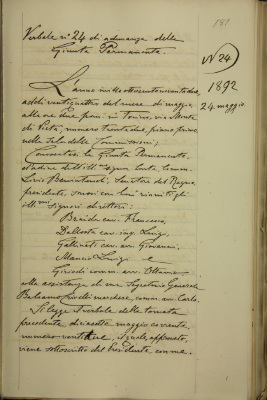 181
Verbale n° 24 di adunanza della
Giunta Permanente.
N° 24
1892
24 maggio
L'anno mille ottocento novantadue,
addì ventiquattro del mese di maggio,
alle ore due pom. in Torino, via Monte
di Pietà, numero trentadue, piano primo,
nella Sala delle Commissioni;
Convocatasi la Giunta Permanente,
ed Livio Benintendi, Senatore del Regno,
presidente, sonosi con lui riuniti gli
Ill.mi signori direttori:
Biandrà cav. Francesco,
Dallosta cav. ing. Luigi,
Gattinati cav. avv. Giovanni,
Mancio Luigi e
Girodi comm. avv. Ottavio
alla assistenza di me Segretario Generale
Balsamo Crivelli marchese, comm. avv. Carlo.
Si legge il verbale della tornata
precedente diciassette maggio corrente,
numero ventitre, il quale approvato,
viene sottoscritto dal Presidente con me.